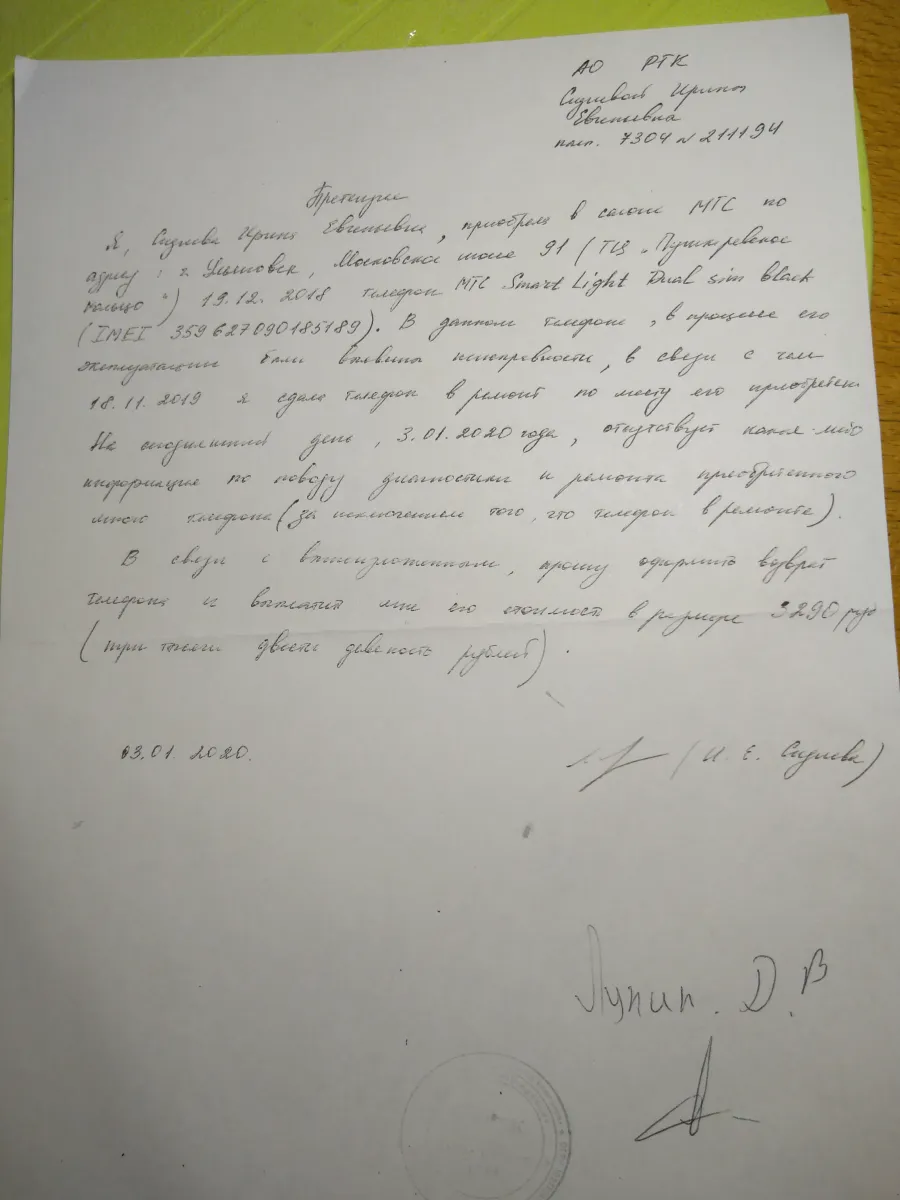 АО РТК
Сизлевой Ирины
Евгеньевна
пасп. 7304 № 211194
Претензия
Я, Сизлева Ирина Евгеньевна, приобрела в салоне МТС по
адресу: г. Ульяновск, Московское шоссе 91 (ТЦ „Пушкаревское
кольцо“) 19.12.2018 телефон МТС Smart Light Dual sim black
(IMEI 359627090185189). В данном телефоне, в процессе его
эксплуатации были выявлены неисправности, в связи с чем
18.11.2019 я сдала телефон в ремонт по месту его приобретен.
На сегодняшний день, 3.01.2020 года, отсутствует какая-либо
информация по поводу диагностики и ремонта преобретенного
мною телефона (за исключением того, что телефон в ремонте).
В связи с вышеизложенным, прошу оформить возврат
телефона и выплатить мне его стоимость в размере 3290 руб
(три тысячи двести девяность рублей).
03.01.2020.
(И. Е. Сизлева)
Лупин. Д. В